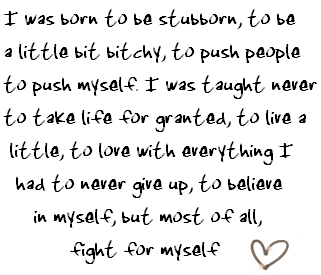 I was born to be stubborn, to be
a little bit bitchy, to push people
to push myself. I was taught never
to take life for granted, to live a
little, to love with everything I
had to never give up, to believe
in myself, but most of all,
fight for myself